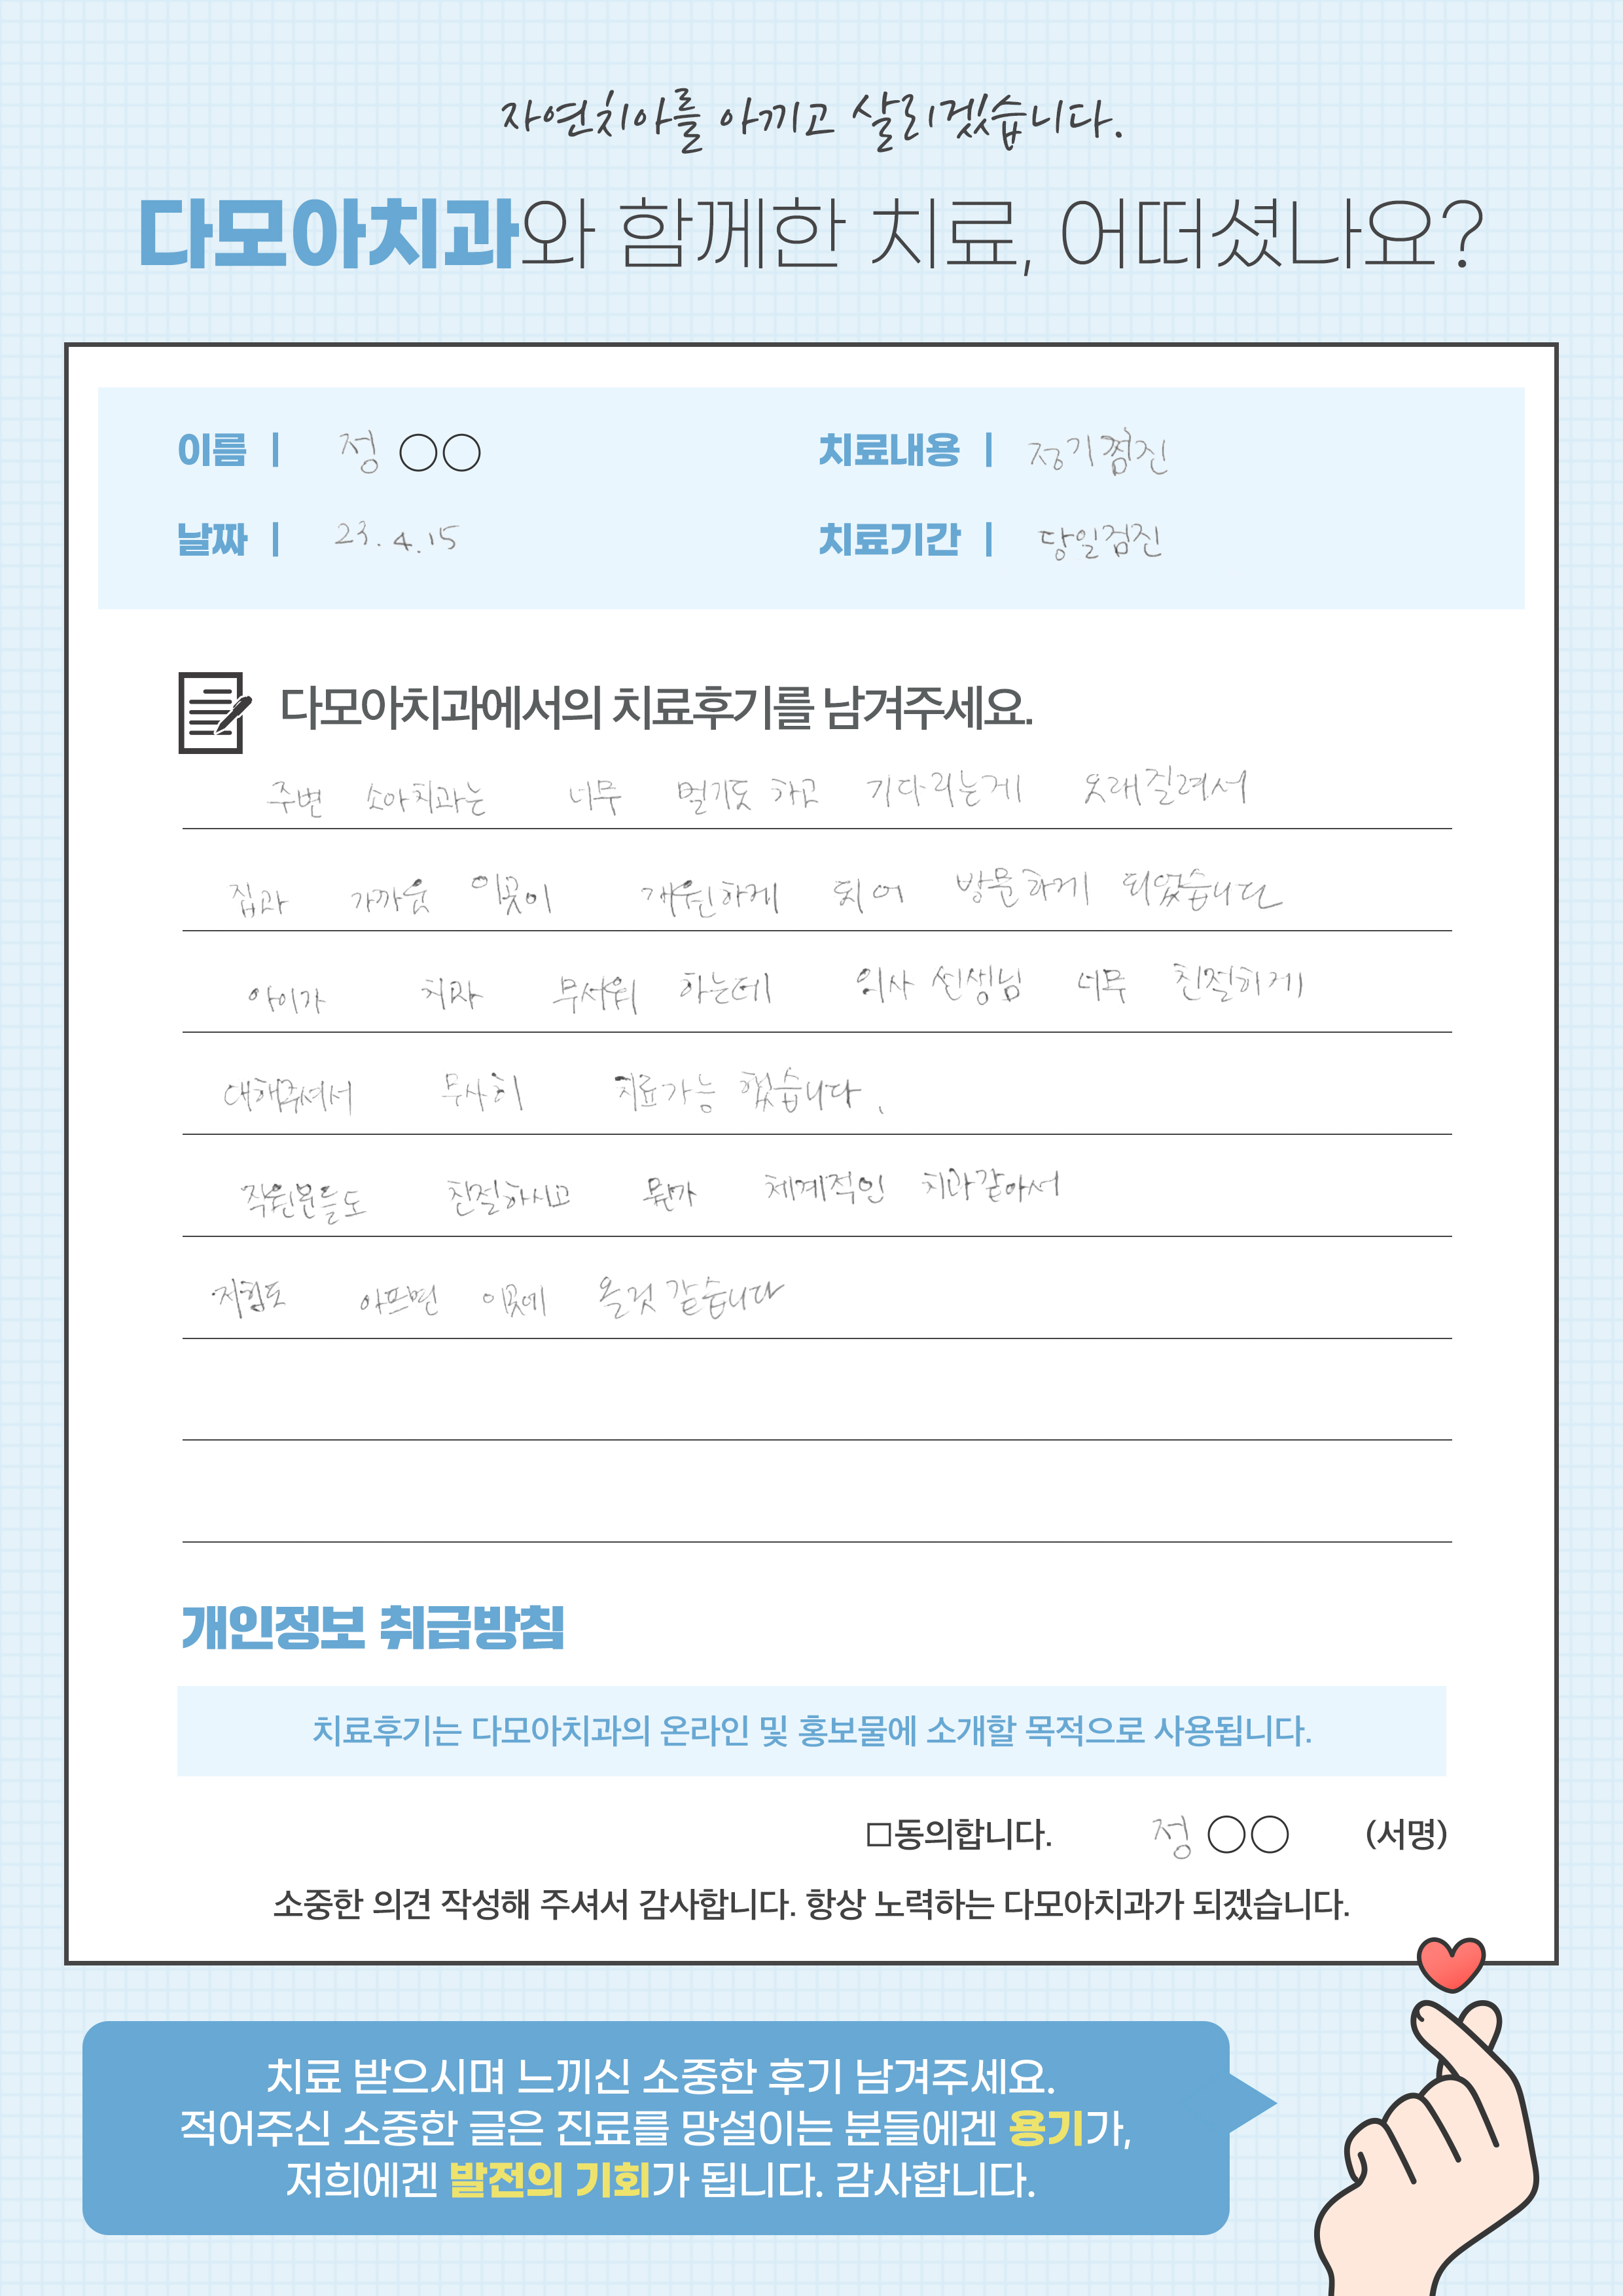 자연치아를 아끼고 살리겠습니다.
다모아치과와 함께한 치료, 어떠셨나요?
이름 | 정 ○○
치료내용 | 정기껌진
날짜 | 23. 4. 15
치료기간 | 당일검진
다모아치과에서의 치료후기를 남겨주세요.
주변 소아치과는 너무 멀기도 하고 기다리는게 오래걸려서
집과 가까운 이곳이 개원하게 되어 방문하게 되었습니다
아이가 치과 무서워 하는데 의사 선생님 너무 친절하게
대해주셔서 무사히 치료가능 했습니다.
직원분들도 친절하시고 뭔가 체계적인 치과같아서
저희도 아프면 이곳에 올것 같습니다
개인정보 취급방침
치료후기는 다모아치과의 온라인 및 홍보물에 소개할 목적으로 사용됩니다.
□동의합니다. 정 ○○ (서명)
소중한 의견 작성해 주셔서 감사합니다. 항상 노력하는 다모아치과가 되겠습니다.
치료 받으시며 느끼신 소중한 후기 남겨주세요.
적어주신 소중한 글은 진료를 망설이는 분들에겐 용기가,
저희에겐 발전의 기회가 됩니다. 감사합니다.